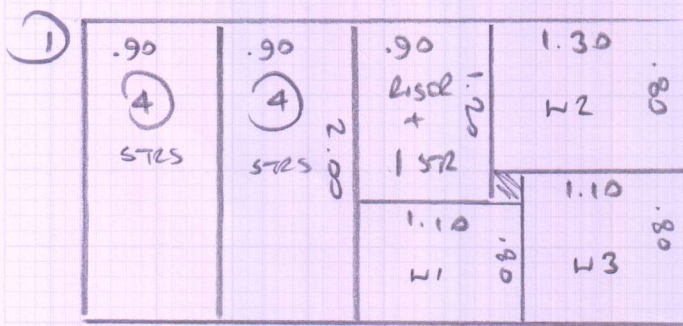 1
.90
4
STRS
.90
4
STRS
2.00
.90
RISOR
+
1 STR
1.20
1.30
W2
.80
1.10
W1
.80
1.10
W3
.80